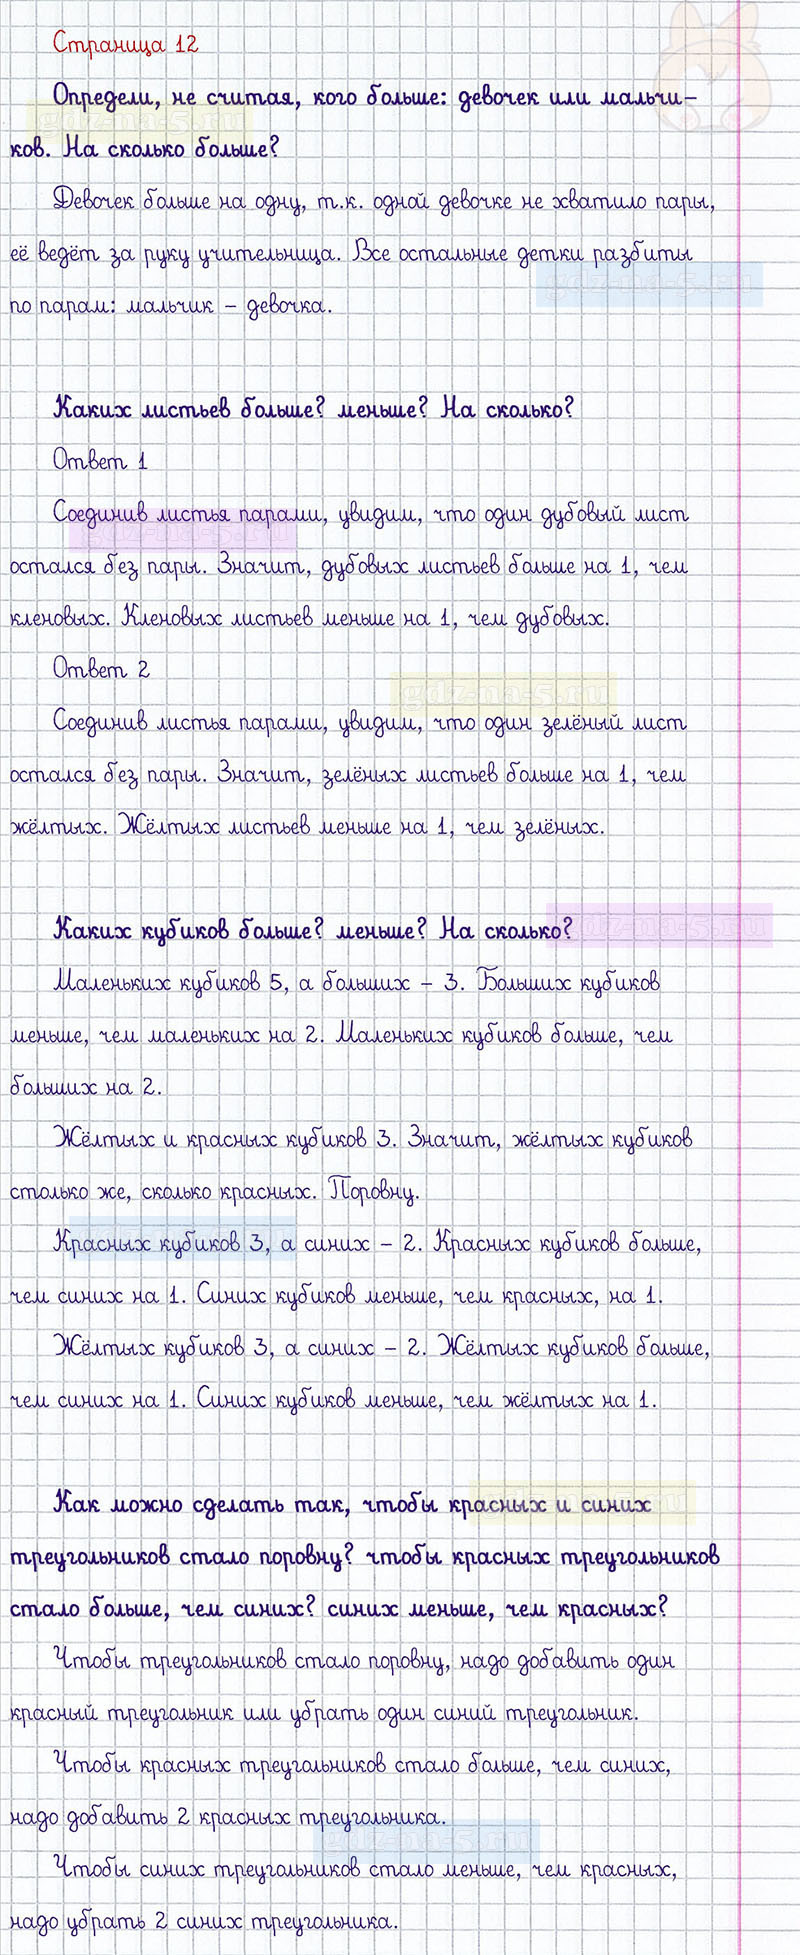 Страница 12
Определи, не считая, кого больше: девочек или мальчи-
ков. На сколько больше?
Девочек больше на одну, т.к. одной девочке не хватило пары,
её ведёт за руку учительница. Все остальные детки разбиты
gdz-na-5.ru
по парам: мальчик – девочка.
Каких листьев больше? меньше? На сколько?
Ответ 1
Соединив листья парами, увидим, что один дубовый лист
gdz-na-5.ru
остался без пары. Значит, дубовых листьев больше на 1, чем
кленовых. Кленовых листьев меньше на 1, чем дубовых.
Ответ 2
gdz-na-5.ru
Соединив листья парами, увидим, что один зелёный лист
остался без пары. Значит, зелёных листьев больше на 1, чем
жёлтых. Жёлтых листьев меньше на 1, чем зелёных.
Каких кубиков больше? меньше? На сколько?
gdz-na-5.ru
Маленьких кубиков 5, а больших – 3. Больших кубиков
меньше, чем маленьких на 2. Маленьких кубиков больше, чем
больших на 2.
Жёлтых и красных кубиков 3. Значит, жёлтых кубиков
столько же, сколько красных. Поровну.
Красных кубиков 3, а синих – 2. Красных кубиков больше,
чем синих на 1. Синих кубиков меньше, чем красных, на 1.
Жёлтых кубиков 3, а синих – 2. Жёлтых кубиков больше,
чем синих на 1. Синих кубиков меньше, чем жёлтых на 1.
Как можно сделать так, чтобы красных и синих
треугольников стало поровну? чтобы красных треугольников
стало больше, чем синих? синих меньше, чем красных?
Чтобы треугольников стало поровну, надо добавить один
красный треугольник или убрать один синий треугольник.
Чтобы красных треугольников стало больше, чем синих,
надо добавить 2 красных треугольника.
gdz-na-5.ru
Чтобы синих треугольников стало меньше, чем красных,
надо убрать 2 синих треугольника.